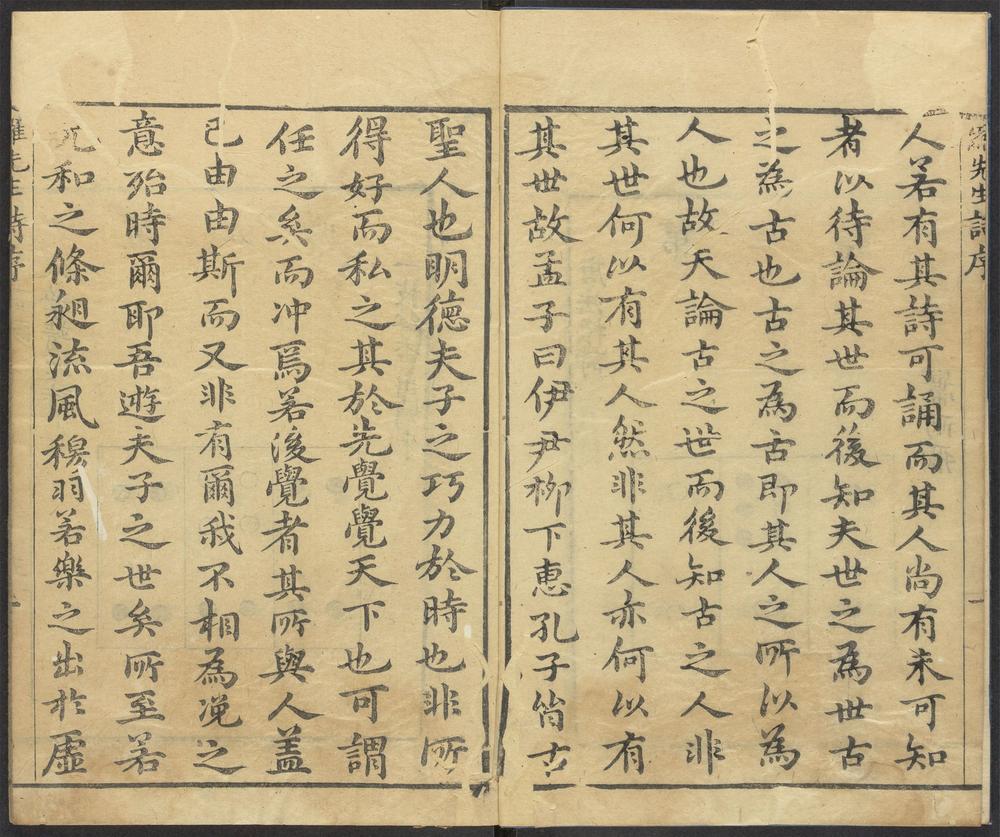 羅先生詩序
人若有其詩可誦而其人尚有未可知
者以待論其世而後知夫世之為世古
之為古也古之為古即其人之所以為
人也故天論古之世而後知古之人非
其世何以有其人然非其人亦何以有
其世故孟子曰伊尹柳下惠孔子皆古
聖人也明德夫子之巧力於時也非所
得好而私之其於先覺覺天下也可謂
任之矣而冲焉若後覺者其所與人盖
已由由斯而又非有爾我不相為浼之
意殆時爾耶吾遊夫子之世矣所至若
元和之條昶流風穆羽若樂之出於虛
羅先生詩序